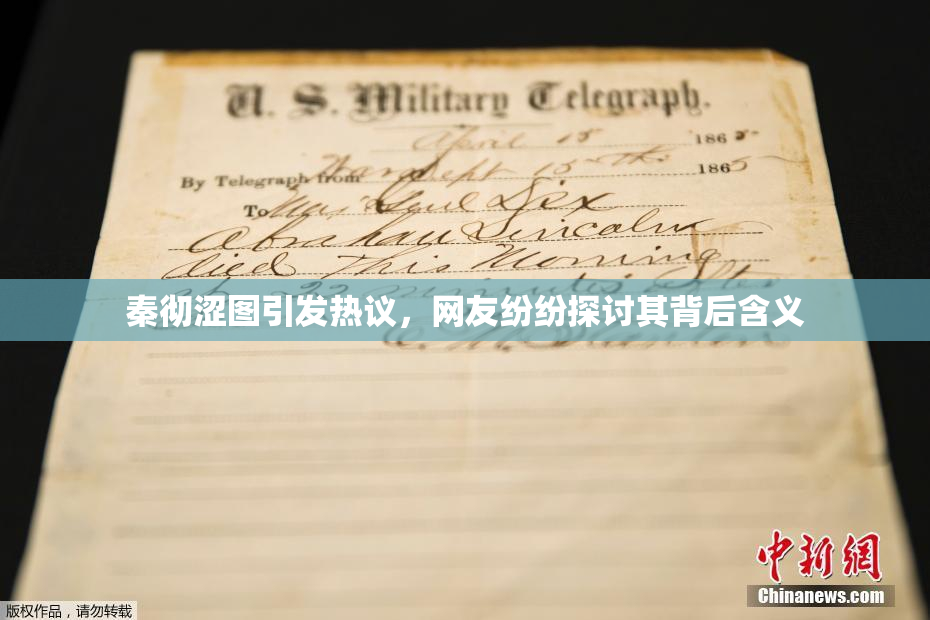 U. S. Military Telegraph.
April 15 1865.
By Telegraph from War Dept 15th 1865
To Maj Genl Dix
Abraham Lincoln
died This Morning
22 minutes after
秦彻涩图引发热议，网友纷纷探讨其背后含义
E. M. Stanton
中新网
Chinanews.com
版权作品，请勿转载